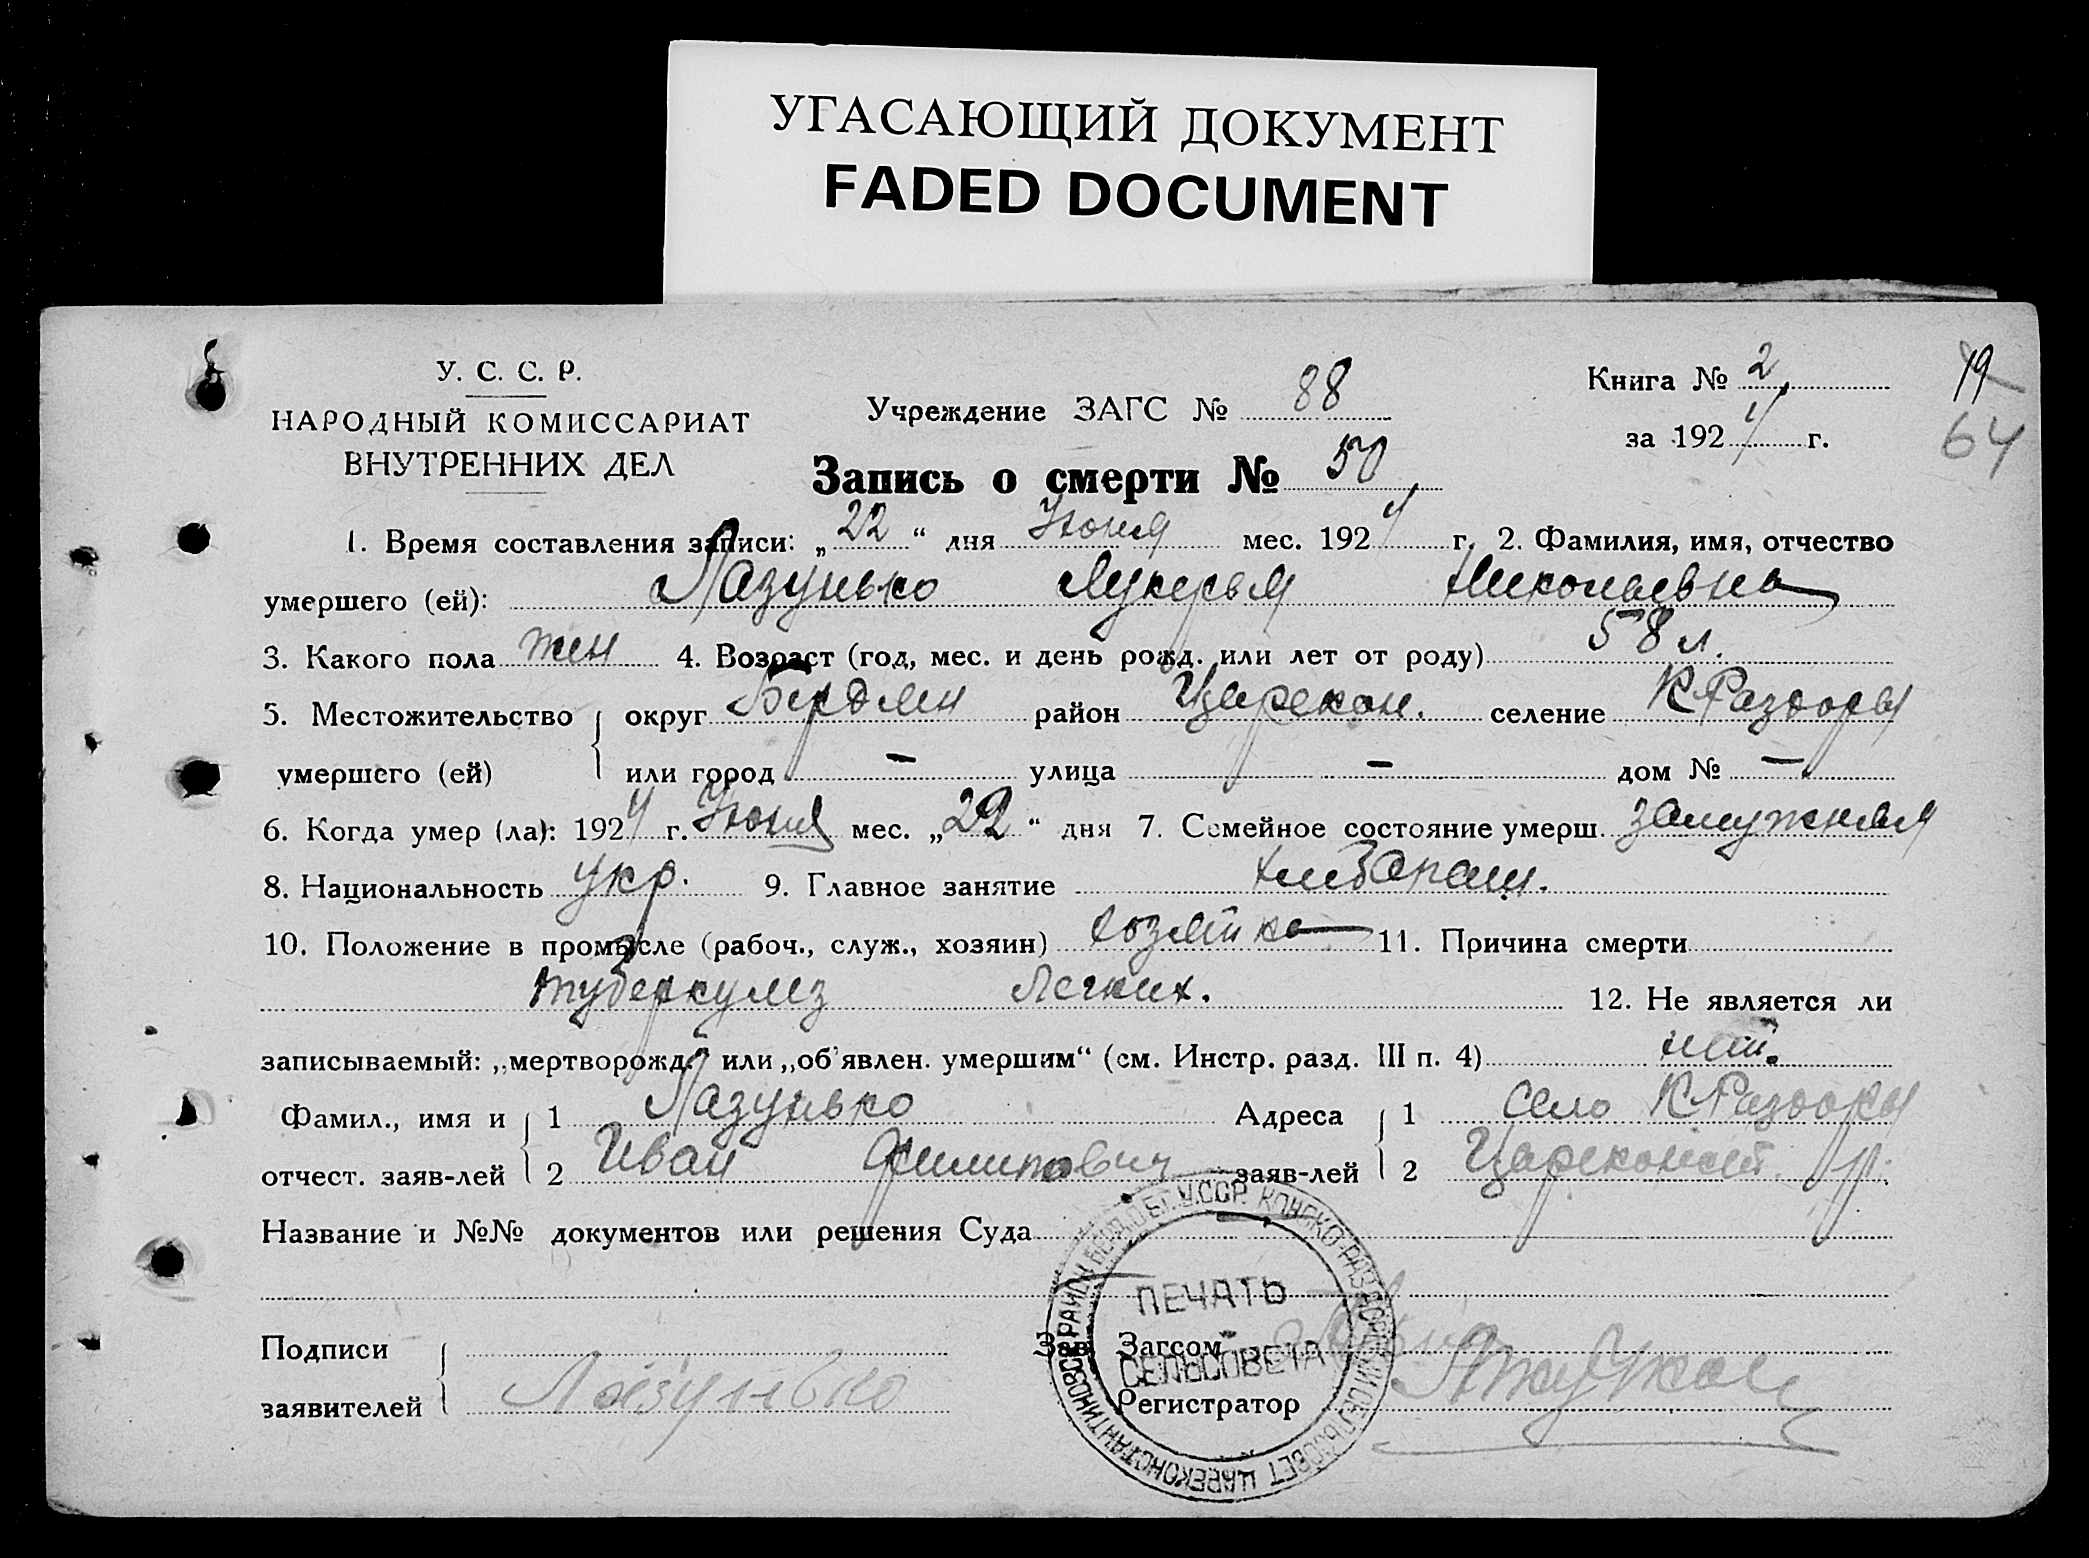 УГАСАЮЩИЙ ДОКУМЕНТ
FADED DOCUMENT
У. С. С. Р.
НАРОДНЫЙ КОМИССАРИАТ
ВНУТРЕННИХ ДЕЛ
Учреждение ЗАГС № 88
Книга № 2
за 1924 г.
19
64
Запись о смерти № 50
1. Время составления записи: „22“ дня Июня мес. 1924 г. 2. Фамилия, имя, отчество
умершего (ей): Лазунько Лукерья Николаевна
3. Какого пола жен 4. Возраст (год, мес. и день рожд. или лет от роду) 58 л.
5. Местожительство округ Бердян район Царекон. селение К Раздоры
умершего (ей) или город — улица — дом № —
6. Когда умер (ла): 1924 г. Июня мес. „22“ дня 7. Семейное состояние умерш. замужняя
8. Национальность укр. 9. Главное занятие хлебопаш.
10. Положение в промысле (рабоч., служ., хозяин) хозяйка 11. Причина смерти
туберкулез легких. 12. Не является ли
записываемый: „мертворожд.“ или „об'явлен. умершим“ (см. Инстр. разд. III п. 4) нет.
Фамил., имя и 1 Лазунько Адреса 1 село К Раздоры
отчест. заяв-лей 2 Иван Филипович заяв-лей 2 Цареконст. р.
Название и №№ документов или решения Суда
Подписи Зав. Загсом
заявителей Лазунько Регистратор
ПЕЧАТЬ
СЕЛЬСОВЕТА
У.ССР. КОНСКО-РАЗДОРСКИЙ СЕЛЬСОВЕТ ЦАРЕКОНСТАНТИНОВСК РАЙОН